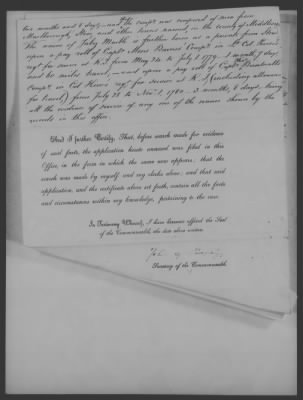 two months and 6 days, and the compy was composed of men from
Marlborough, Stow, and other towns named in the county of Middlesex.
The name of Jabez Meable is further borne as a private from Stow
upon a pay roll of Capt Moses Barnes' Company in Lt Col Peirce's
regt for service at R.I. from May 14 to July 1, 1779 - 1 month 17 days,
and 60 miles travel, and upon a pay roll of Capt
Company in Col Howe's regt for service at R.I. (including allowance
for travel) from July 28 to Nov 1, 1780 - 3 months, 6 days, being
all the evidence of service of any one of the names shown by the
records in this office.
And I further Certify, That, before search made for evidence
of said facts, the application hereto annexed was filed in this
Office, in the form in which the same now appears; that the
search was made by myself and my clerks alone; and that said
application, and the certificate above set forth, contain all the facts
and circumstances within my knowledge, pertaining to the case.
In Testimony Whereof, I have hereunto affixed the Seal
of the Commonwealth, the date above written.
Secretary of the Commonwealth.